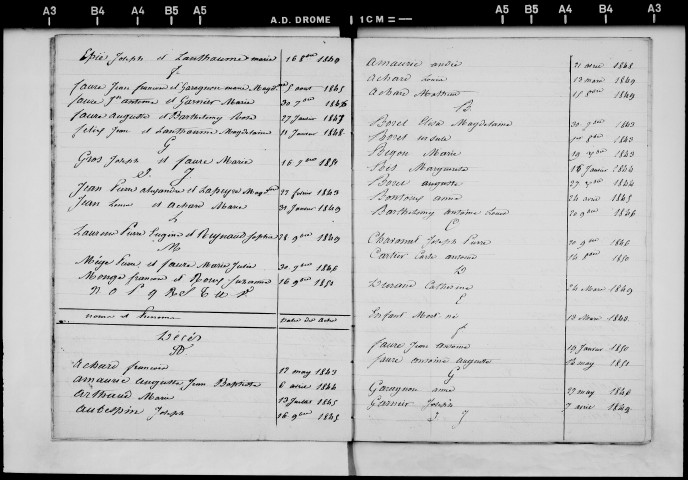 A3 B4 A4 B5 A5 A.D. DROME 1CM= A5 B5 A4 B4 A3
Epié Joseph et Lanthaume marie 16 8bre 1849
F
faure Jean francois et Garagnon marie Magd 5 aout 1845
faure Jn antoine et Garnier Marie 30 7bre 1846
faure auguste et Barthelemy Rose 27 Janvier 1847
felix Jean et Lanthaume Magdelaine 11 Janvier 1848
G
Gros Joseph et faure Marie 16 1851
I. J
Jean Pierre alexandre et Magd 22 fevrier 1843
Jean Louis et achard Marie 31 Janvier 1849
L
Laurens Pierre Eugène et Reynaud Sophie 28 9bre 1849
M
Mège Pierre et faure Marie Julie 30 9bre 1846
Monge francois et Roux Suzanne 16 9bre 1851
N O P Q R S T U V
noms et Prenoms Dates des actes
Décès
A
achard francois 12 may 1843
amaurie auguste Jean Baptiste 6 avril 1844
arthaud Marie 13 Juillet 1845
aubespin Joseph 16 9bre 1845
amaurie andré 21 avril 1848
achard Louis 13 mars 1849
achard Mathieu 15 1849
B
Boret Eliza Magdelaine 30 1843
Boret ursule 1843
Begou Marie 19 1843
Bès Marguerite 16 Janvier 1844
Boret auguste 27 1844
Bontoux anne 24 avril 1845
Barthelemy antoine Louis 20 9bre 1846
C
Charomet Joseph Pierre 20 9bre 1846
Cartier antoine 1850
D
Durand Catherine 24 Mars 1849
E
Enfant Mort né 13 Mars 1843
F
faure Jean antoine 19 Janvier 1850
faure antoine auguste may 1851
G
Garagnon anne 27 may 1846
Garnier Joseph 7 avril 1849
I J